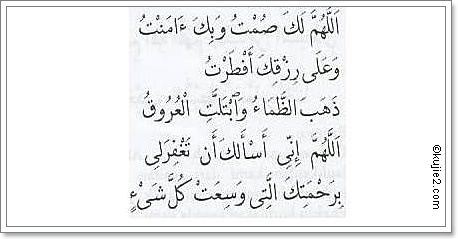 اَللَّهُمَّ لَكَ صُمْتُ وَبِكَ ءَامَنْتُ
وَعَلَى رِزْقِكَ أَفْطَرْتُ
ذَهَبَ الظَّمَاءُ وَابْتَلَّتِ الْعُرُوقُ
اَللَّهُمَّ اِنِّى أَسْأَلُكَ أَن تَغْفِرَلِى
بِرَحْمَتِكَ الَّتِى وَسِعَتْ كُلَّ شَىْءٍ
©kujie2.com